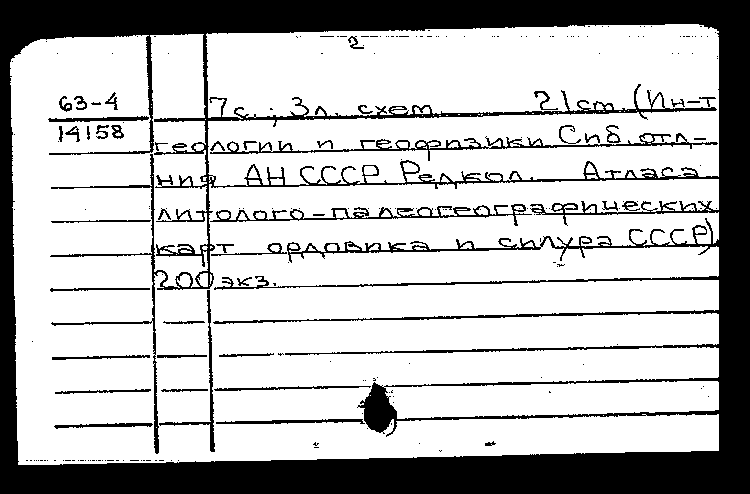 2
63-4 7 с.; 3 л. схем. 21 см. (Ин-т
14158 геологии и геофизики Сиб. отд-
ния АН СССР. Редкол. Атласа
литолого-палеогеографических
карт ордовика и силура СССР)
200 экз.